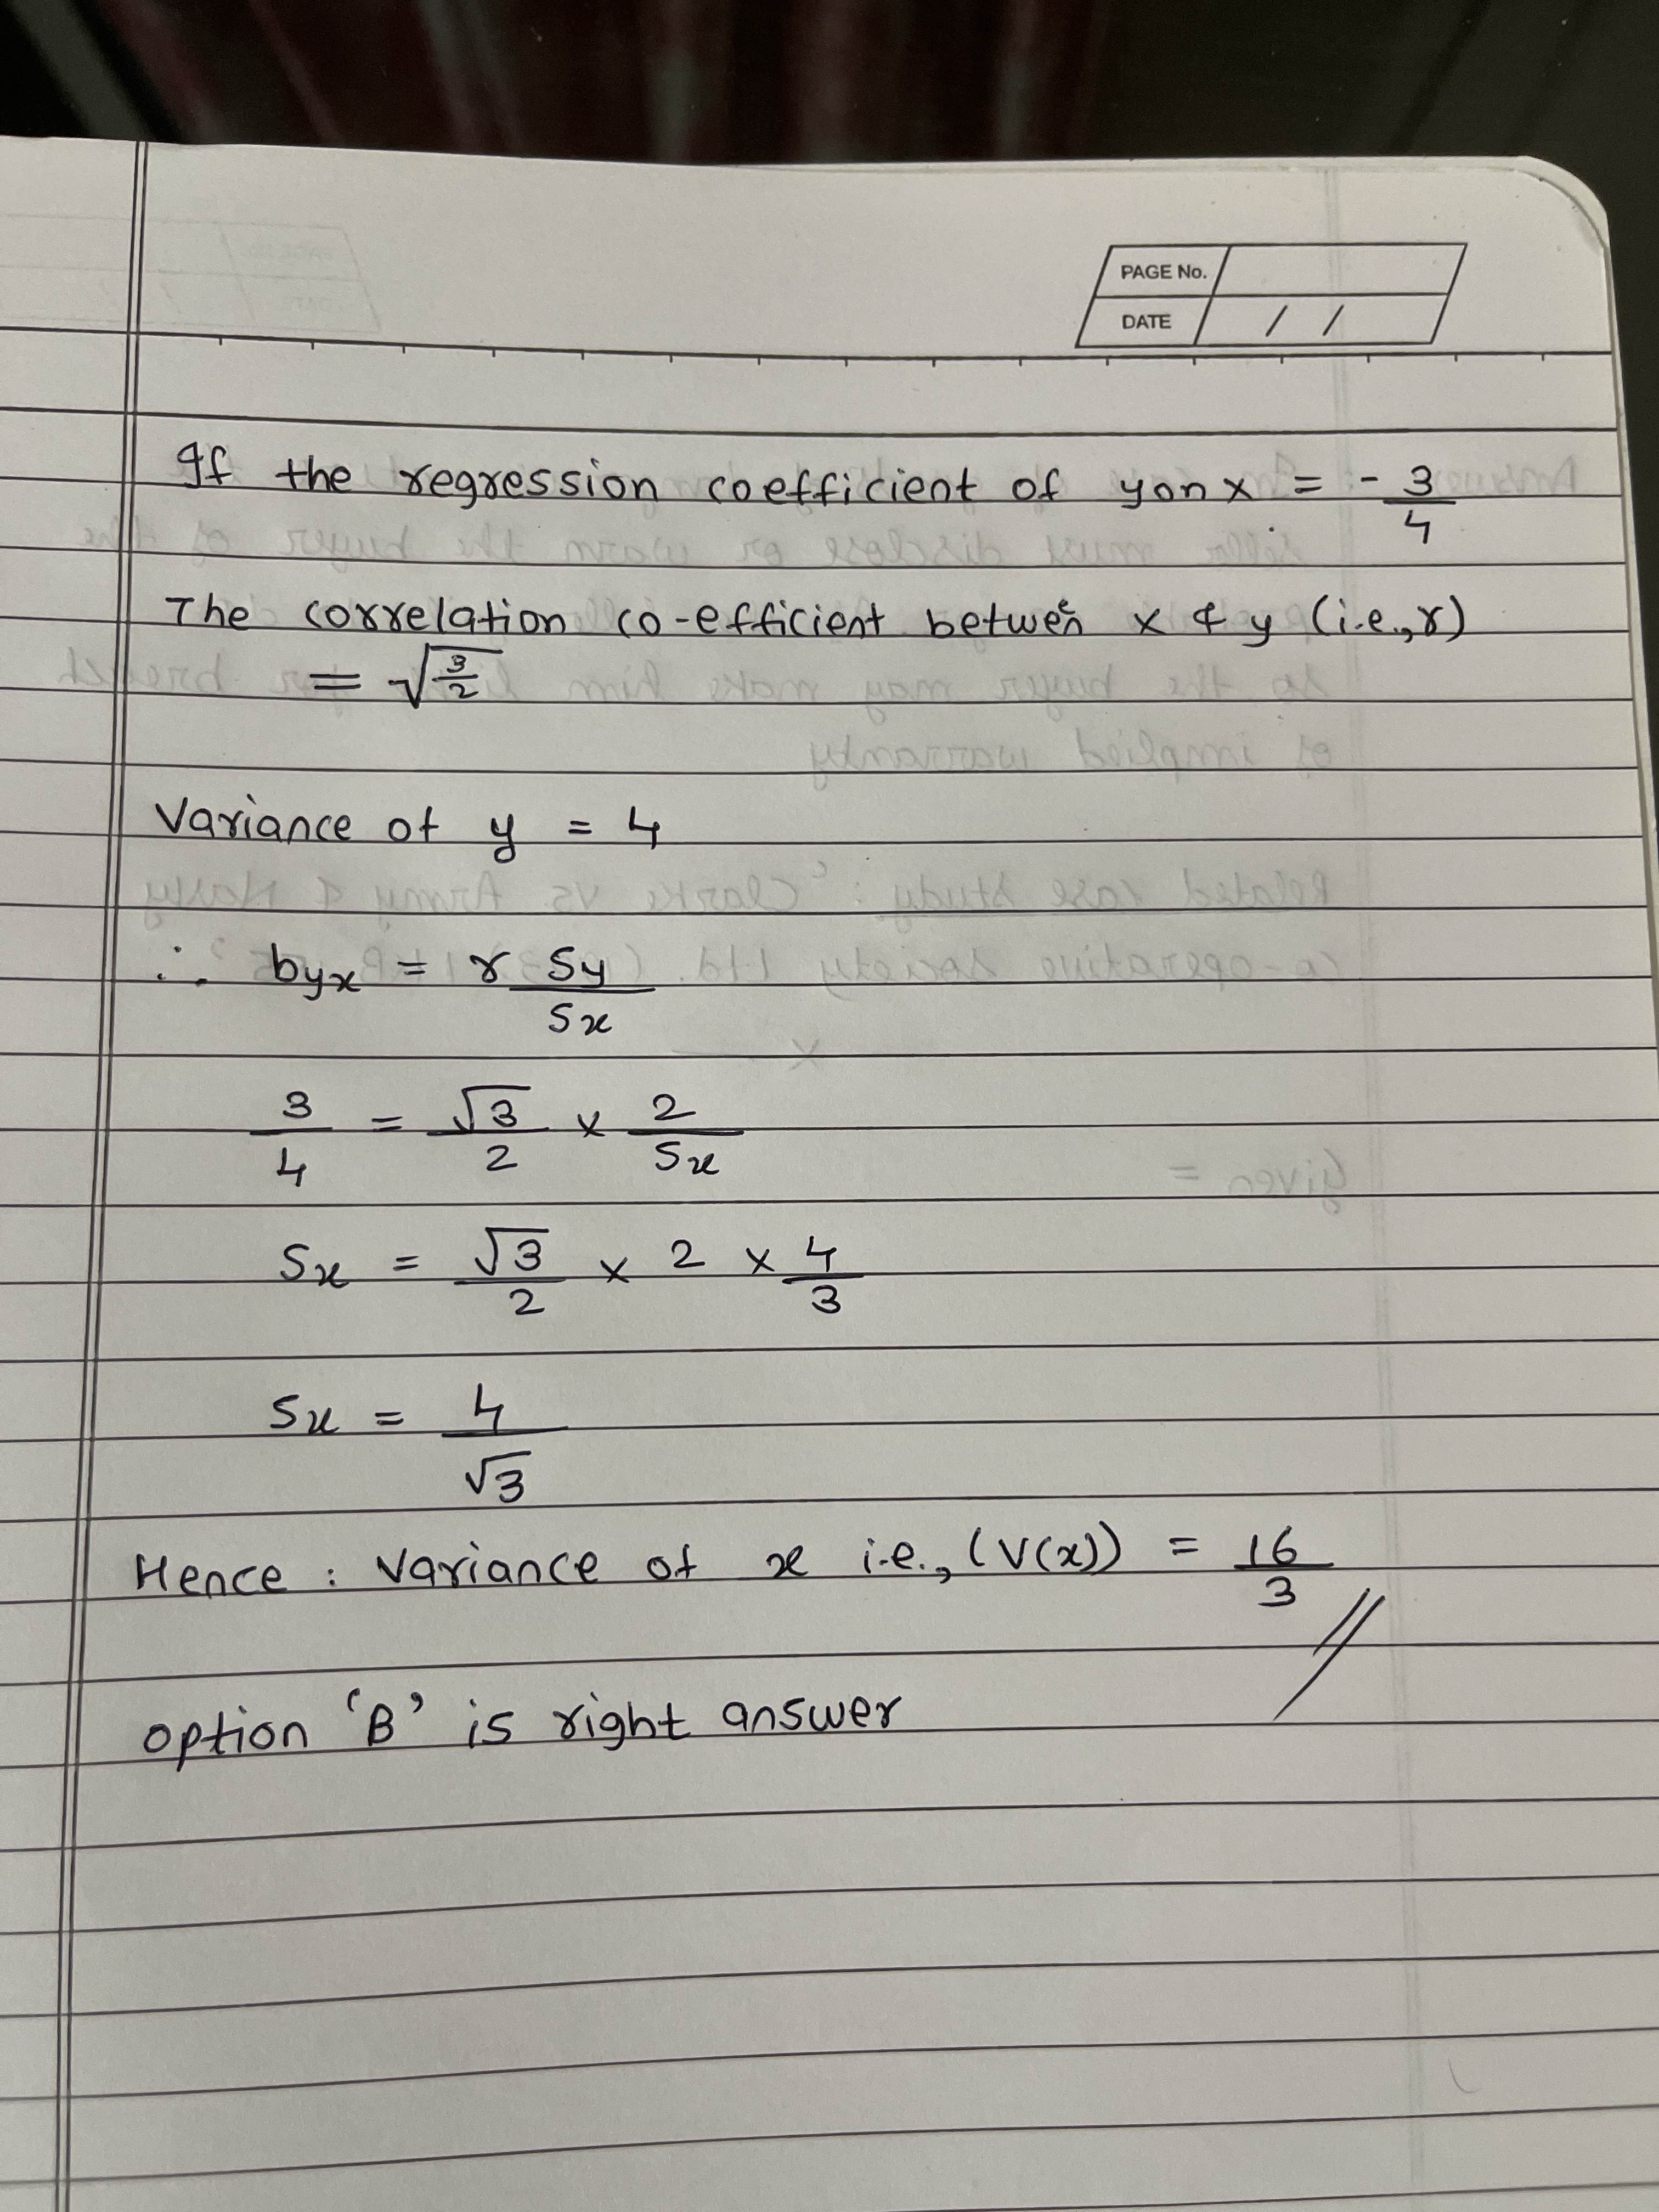 PAGE No.
DATE / /
If the regression coefficient of y on x = - 3/4
The correlation co-efficient betwen x & y (i.e., r)
= √3/2
Variance of y = 4
∴ byx = r Sy/Sx
3/4 = √3/2 × 2/Sx
Sx = √3/2 × 2 × 4/3
Sx = 4/√3
Hence : Variance of x i.e., (V(x)) = 16/3
option 'B' is right answer